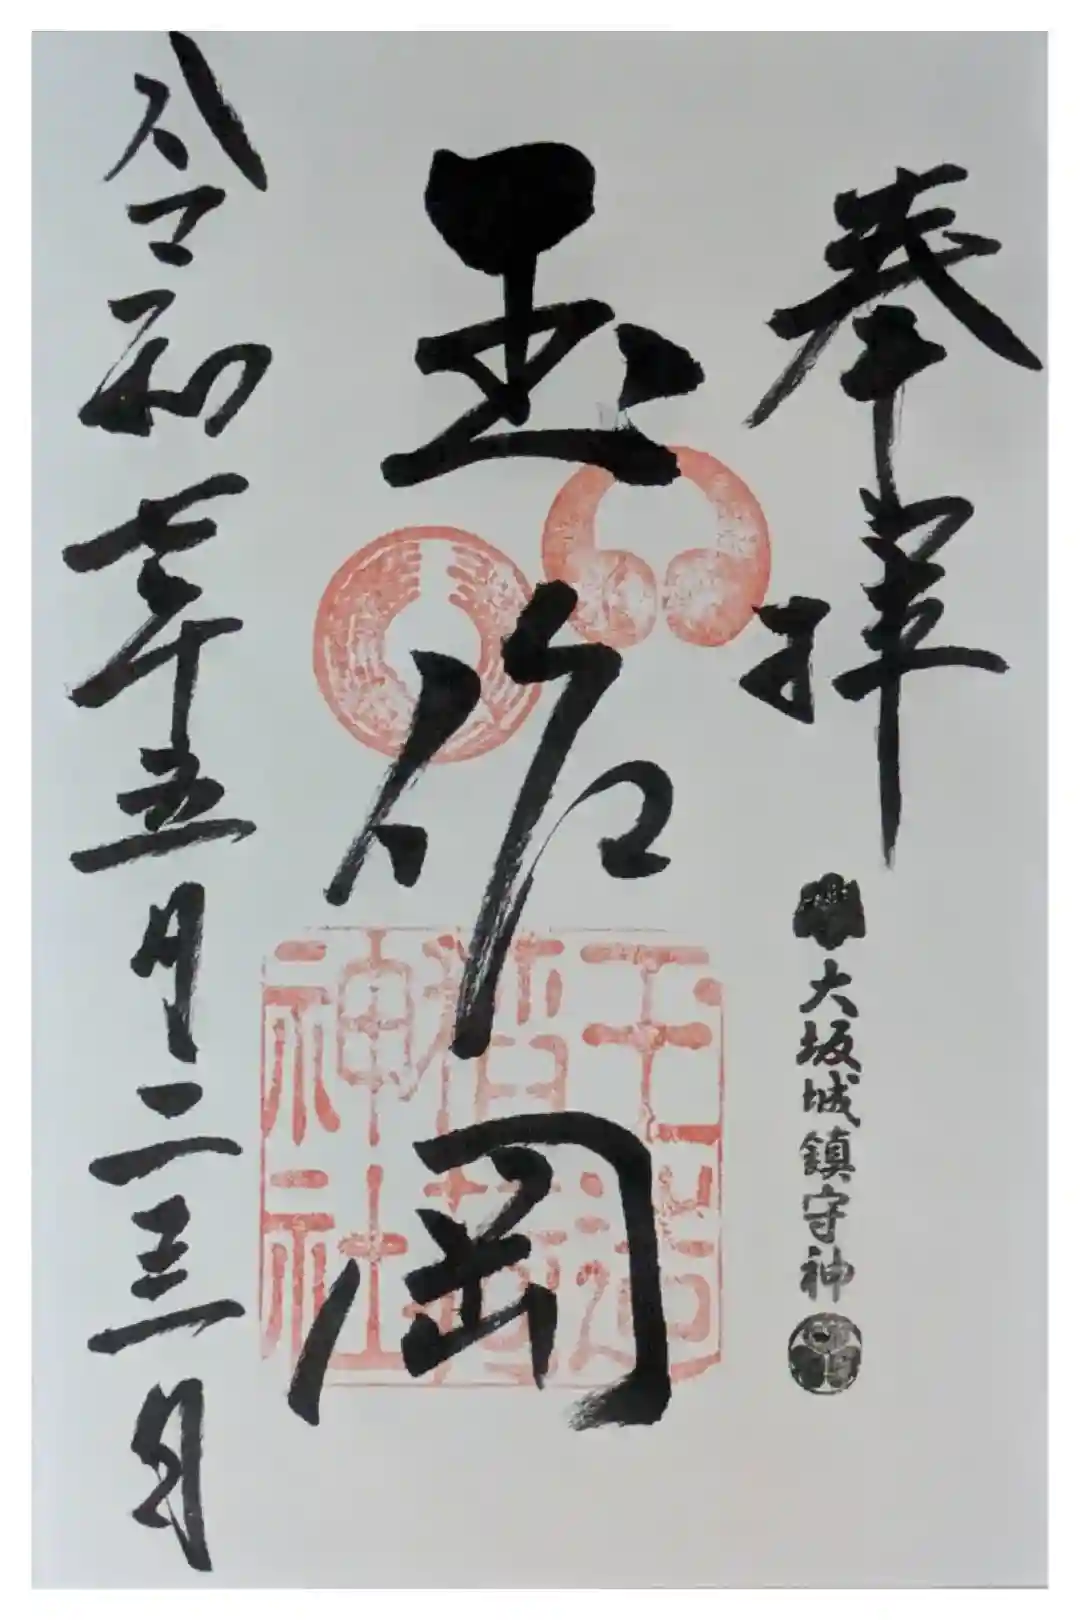 奉拝
大坂城鎮守神
玉佐岡
玉造
稲荷
神社
令和七年五月二三日